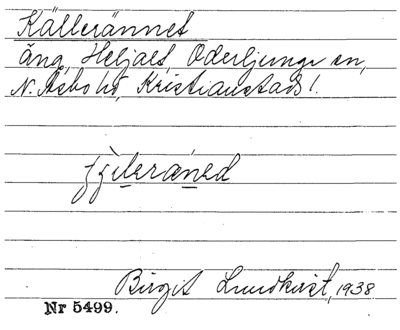 Källerännet
äng, Heljalt, Oderljunga sn,
N. Åsbo hd, Kristianstads l.
Birgit Lundkvist, 1938
Nr 5499.